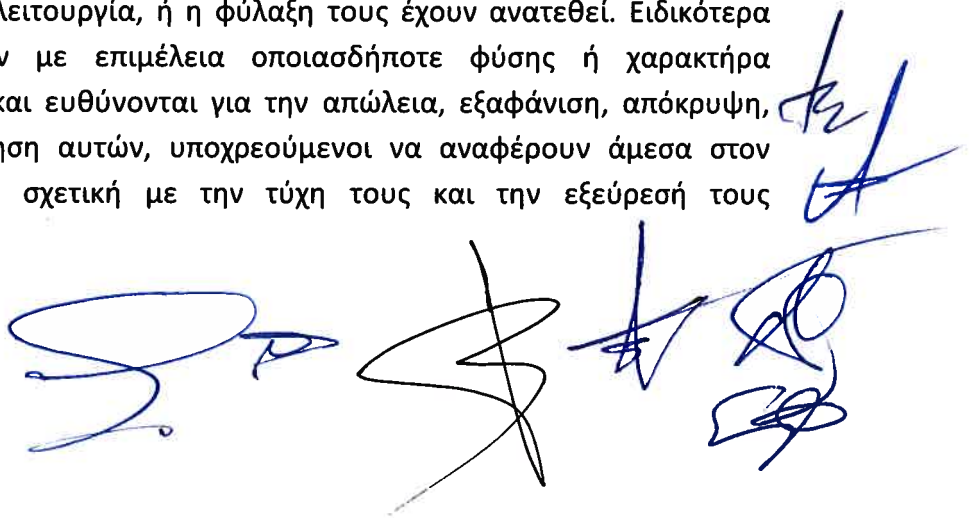 λειτουργία, ή η φύλαξη τους έχουν ανατεθεί. Ειδικότερα
ν με επιμέλεια οποιασδήποτε φύσης ή χαρακτήρα
και ευθύνονται για την απώλεια, εξαφάνιση, απόκρυψη,
ηση αυτών, υποχρεούμενοι να αναφέρουν άμεσα στον
σχετική με την τύχη τους και την εξεύρεσή τους